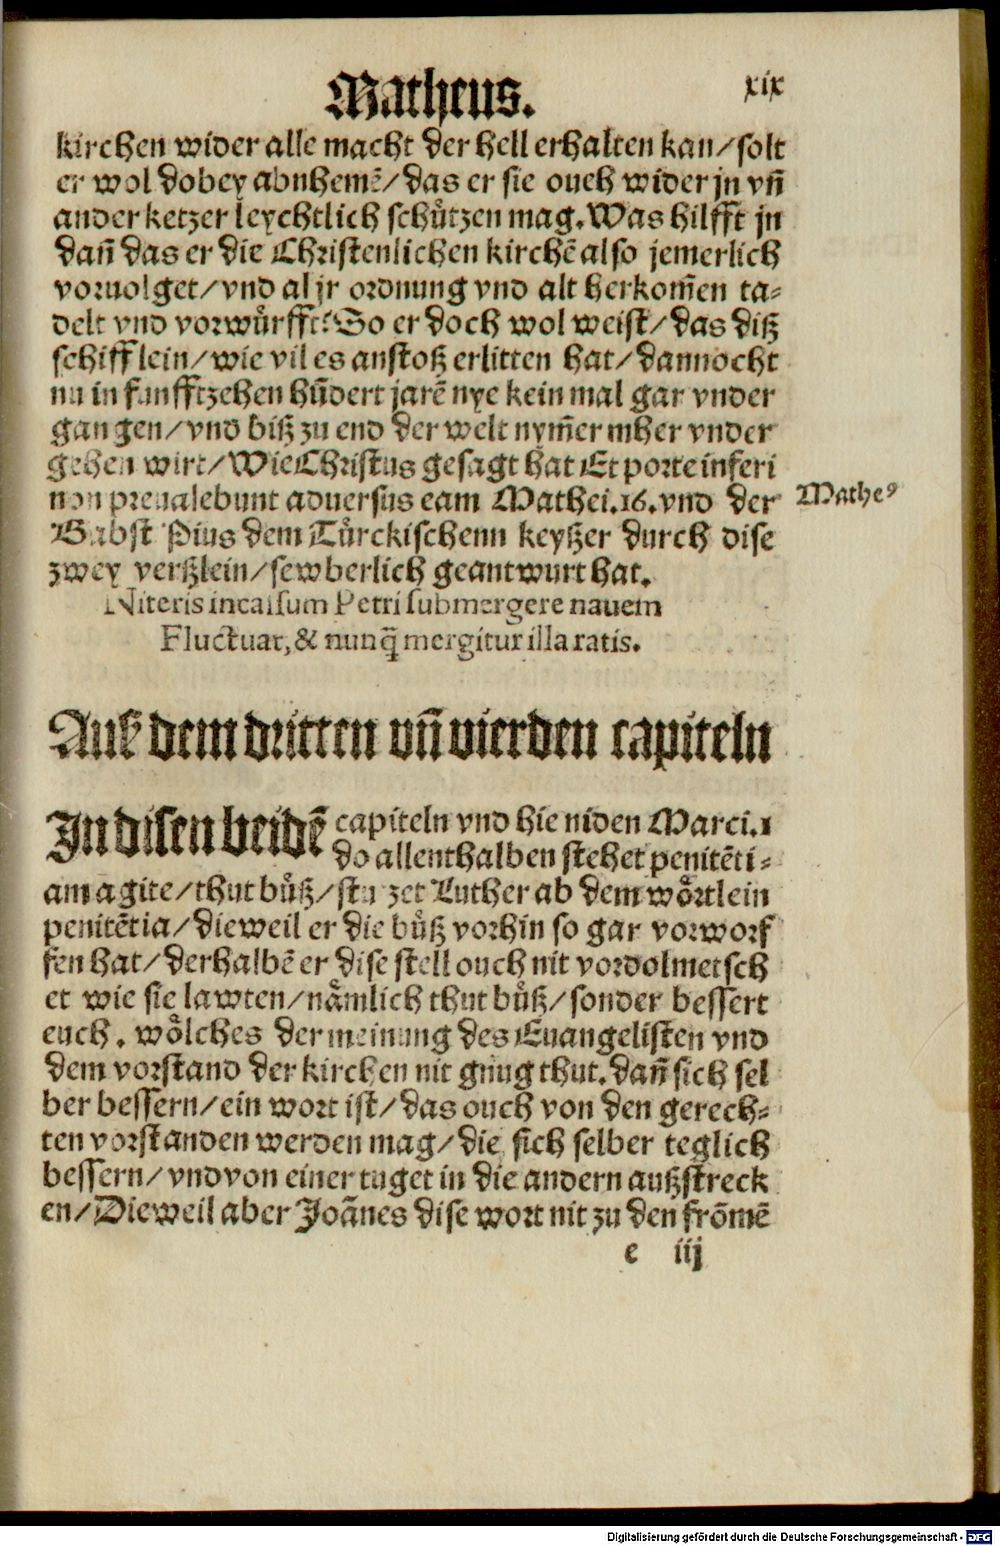 Matheus. xix
kirchen wider alle macht der hell erhalten kan/solt
er wol dobey abnhemē/das er sie ouch wider jn vn̄
ander ketzer leychtlich schuͤtzen mag.Was hilfft jn
dan̄ das er die Christenlichen kirchē also jemerlich
voruolget/vnd al jr ordnung vnd alt herkom̄en ta⸗
delt vnd vorwuͤrfft? So er doch wol weist/das diß
schifflein/wie vil es anstoß erlitten hat/dannocht
nu in funfftzehen hūdert jarē nye kein mal gar vnder
gangen/vnd biß zu end der welt nym̄er mher vnder
gehen wirt/Wie Christus gesagt hat Et porte inferi
non preualebunt aduersus eam Mathei.16.vnd der
Matheꝰ
Babst Pius dem Tuͤrckischenn keyßer durch dise
zwey verßlein/sewberlich geantwurt hat.
Niteris incassum Petri submergere nauem
Fluctuat,& nunq̄ mergitur illa ratis.
Auß dem dritten vn̄ vierden capiteln
In disen beidē capiteln vnd hie niden Marci.1
do allenthalben stehet penitēti⸗
am agite/thut buͤß/stutzet Luther ab dem woͤrtlein
penitētia/dieweil er die buͤß vorhin so gar vorworf
fen hat/derhalbē er dise stell ouch nit vordolmetsch
et wie sie lawten/naͤmlich thut buͤß/sonder bessert
euch. woͤlches der meinung des Euangelisten vnd
dem vorstand der kirchen nit gnug thut.dan̄ sich sel
ber bessern/ein wort ist/das ouch von den gerech⸗
ten vorstanden werden mag/die sich selber teglich
bessern/vnd von einer tuget in die andern außstreck
en/Dieweil aber Joānes dise wort nit zu den frōmē
e iij
Digitalisierung gefördert durch die Deutsche Forschungsgemeinschaft - DFG